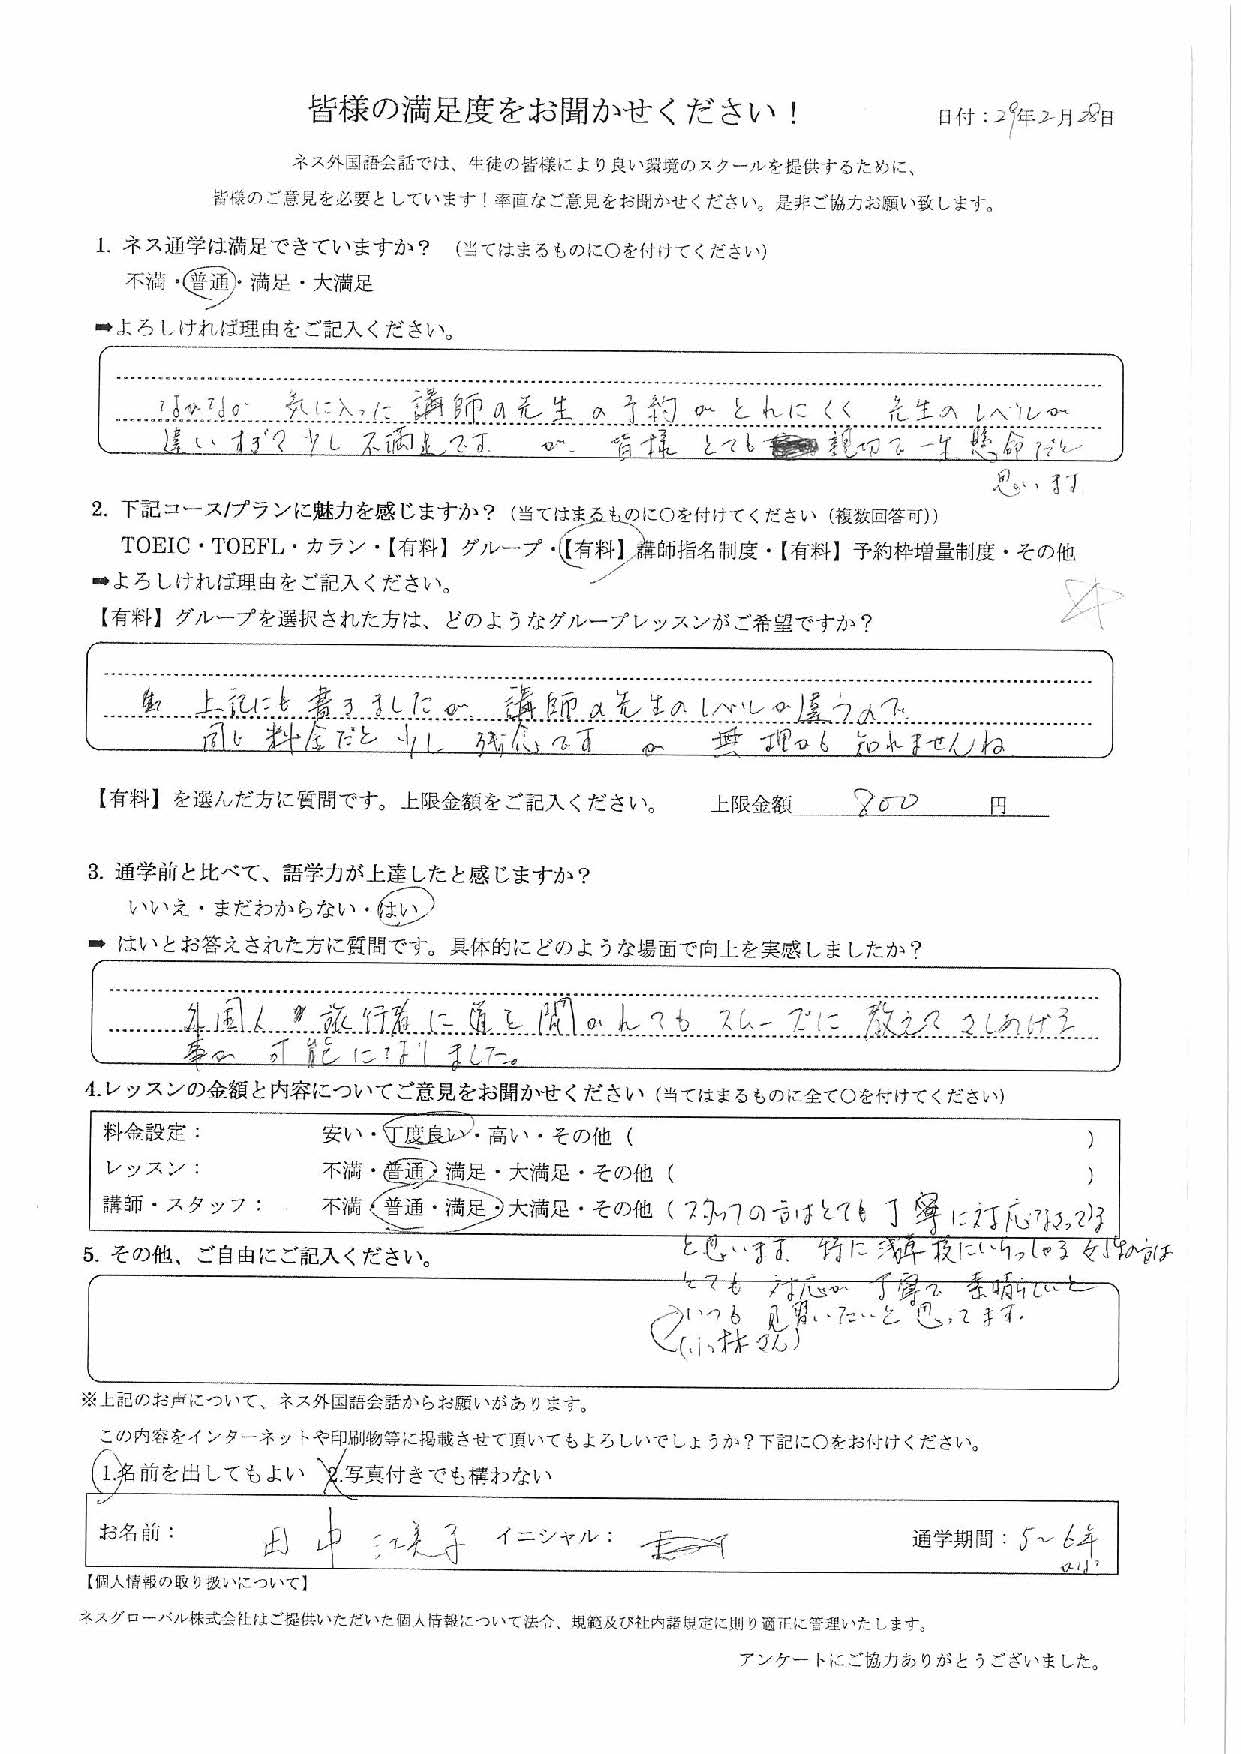 皆様の満足度をお聞かせください！
日付：29年2月28日
ネス外国語会話では、生徒の皆様により良い環境のスクールを提供するために、
皆様のご意見を必要としています！率直なご意見をお聞かせください。是非ご協力お願い致します。
1. ネス通学は満足できていますか？（当てはまるものに〇を付けてください）
不満・普通・満足・大満足
➡よろしければ理由をご記入ください。
なかなか 気に入った 講師の先生の予約がとれにくく 先生のレベルが
違いすぎて少し不満足です が 皆様 とても 親切で一生懸命だと
思います
2. 下記コース/プランに魅力を感じますか？（当てはまるものに〇を付けてください（複数回答可））
TOEIC・TOEFL・カラン・【有料】グループ・【有料】講師指名制度・【有料】予約枠増量制度・その他
➡よろしければ理由をご記入ください。
【有料】グループを選択された方は、どのようなグループレッスンがご希望ですか？
上記にも書きましたが 講師の先生のレベルが違うので
同じ料金だと少し残念ですが 無理かも知れませんね
【有料】を選んだ方に質問です。上限金額をご記入ください。 上限金額 800 円
3. 通学前と比べて、語学力が上達したと感じますか？
いいえ・まだわからない・はい
➡ はいとお答えされた方に質問です。具体的にどのような場面で向上を実感しましたか？
外国人 旅行者に道を聞かれてもスムーズに教えてさしあげる
事が可能になりました。
4.レッスンの金額と内容についてご意見をお聞かせください（当てはまるものに全て〇を付けてください）
料金設定： 安い・丁度良い・高い・その他（ ）
レッスン： 不満・普通・満足・大満足・その他（ ）
講師・スタッフ： 不満・普通・満足・大満足・その他（スタッフの方はとても丁寧に対応なさってる
と思います 特に浅草校にいらっしゃる女性の方は
5. その他、ご自由にご記入ください。
とても対応が丁寧で素晴らしいと
いつも見習いたいと思ってます。
(小林さん)
※上記のお声について、ネス外国語会話からお願いがあります。
この内容をインターネットや印刷物等に掲載させて頂いてもよろしいでしょうか？下記に〇をお付けください。
1.名前を出してもよい 2.写真付きでも構わない
お名前： 田中 江美子 イニシャル： 通学期間：5～6年
【個人情報の取り扱いについて】
ネスグローバル株式会社はご提供いただいた個人情報について法令、規範及び社内諸規定に則り適正に管理いたします。
アンケートにご協力ありがとうございました。